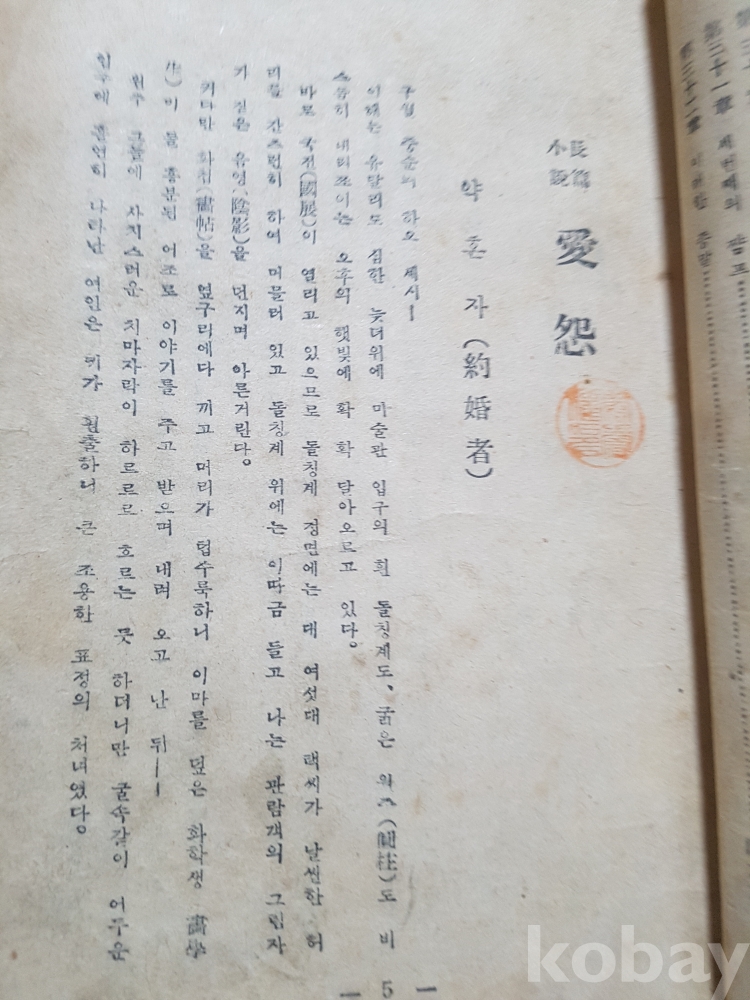 第二十一章 세번째의
第二十二章
長篇
小說
愛怨
약혼자(約婚者)
구월 중순의 하오 세시―
이때는 유달리도 심한 늦더위에 미술관 입구의 흰 돌칭계도, 굵은 원주(圓柱)도 비
스듬히 내려쪼이는 오후의 햇빛에 확 확 달아오르고 있다.
바로 국전(國展)이 열리고 있으므로 돌칭계 정면에는 대 여섯대 택씨가 날씬한 허
리를 간즈런히 하여 머물러 있고 돌칭계 위에는 이따금 들고 나는 관람객의 그림자
기 짙은 음영(陰影)을 던지며 아른거린다.
커다란 화첩(畵帖)을 옆구리에다 끼고 머리가 텁수룩하니 이마를 덮은 화학생 畵學
生)이 둘 흥분된 어조로 이야기를 주고 받으며 내려 오고 난 뒤――
원주 그늘에 사치스러운 치마자락이 하르르르 흐르는 듯 하더니만 굴속같이 어두운
입구에 나타난 여인은 키가 훤출하니 큰 조용한 표정의 처녀였다.
— 5 —
kobay